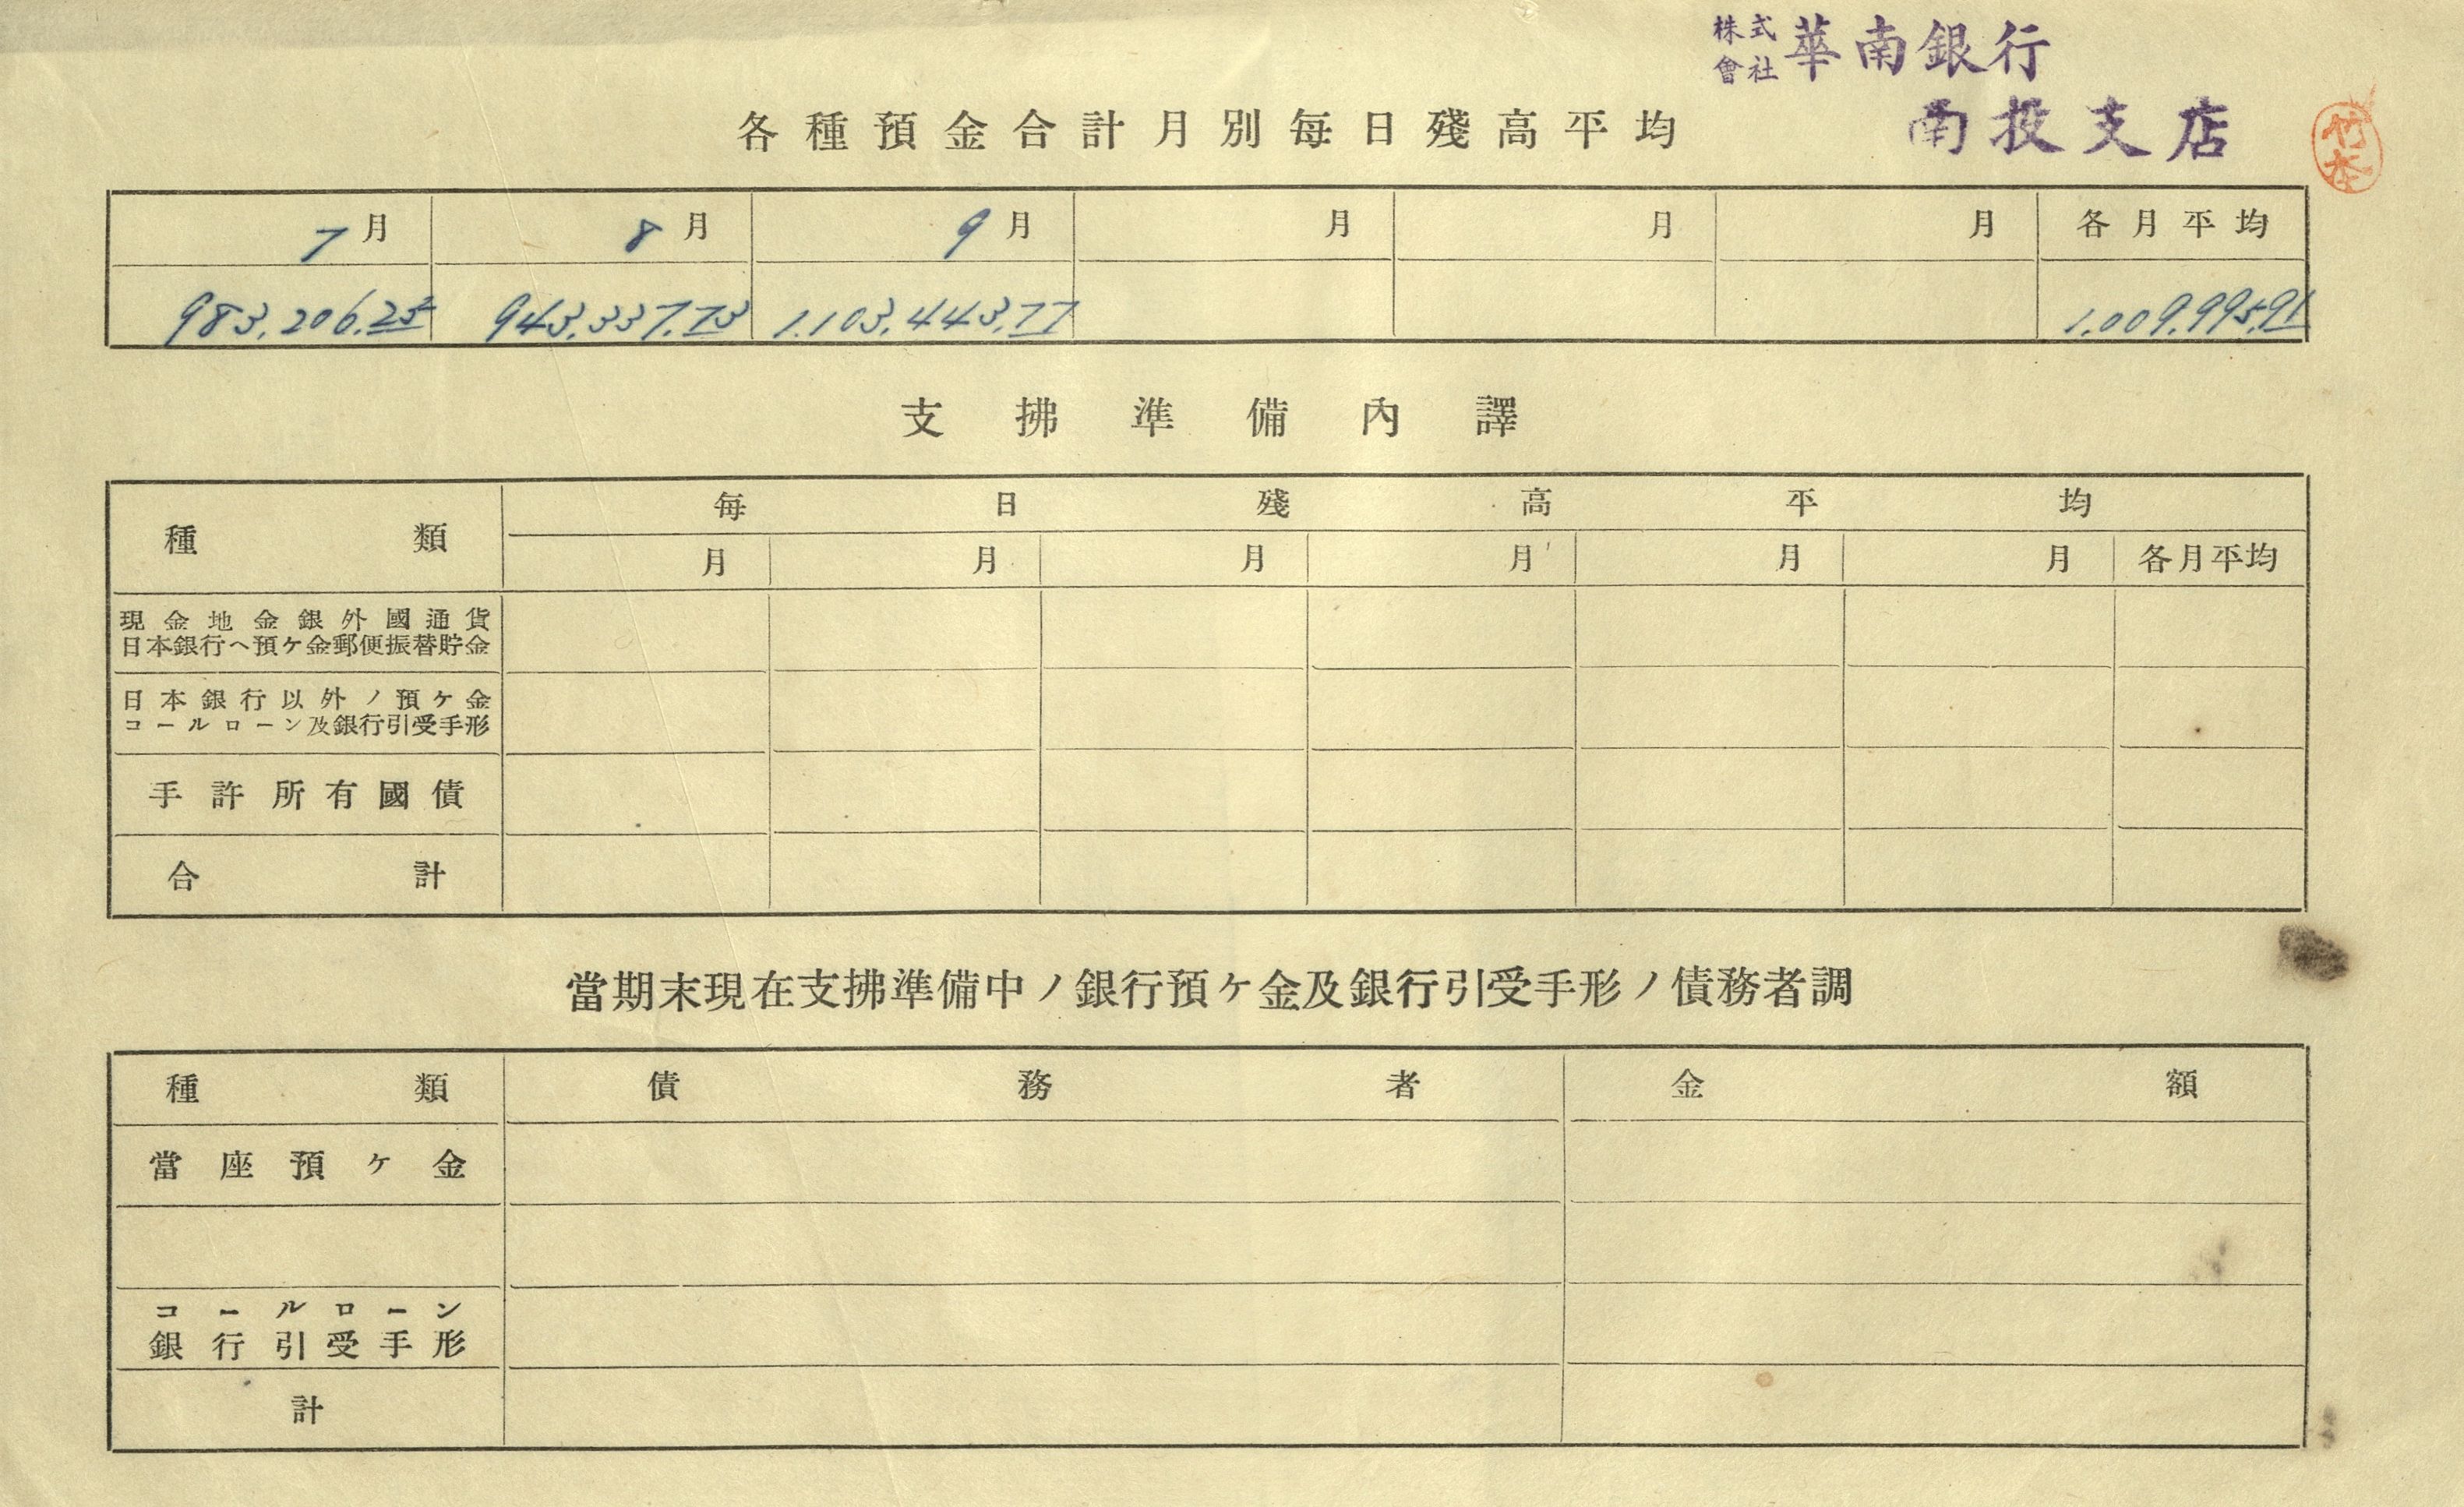 株式會社 華南銀行
南投支店
竹本
各種預金合計月別每日殘高平均
7月 8月 9月 月 月 月 各月平均
983,206.25 943,337.73 1.103,443.77 1.009.995.91
支拂準備內譯
種類 每日殘高平均
月 月 月 月 月 月 各月平均
現金地金銀外國通貨
日本銀行へ預ケ金郵便振替貯金
日本銀行以外ノ預ケ金
コールローン及銀行引受手形
手許所有國債
合計
當期末現在支拂準備中ノ銀行預ケ金及銀行引受手形ノ債務者調
種類 債務者 金額
當座預ケ金
コールローン
銀行引受手形
計